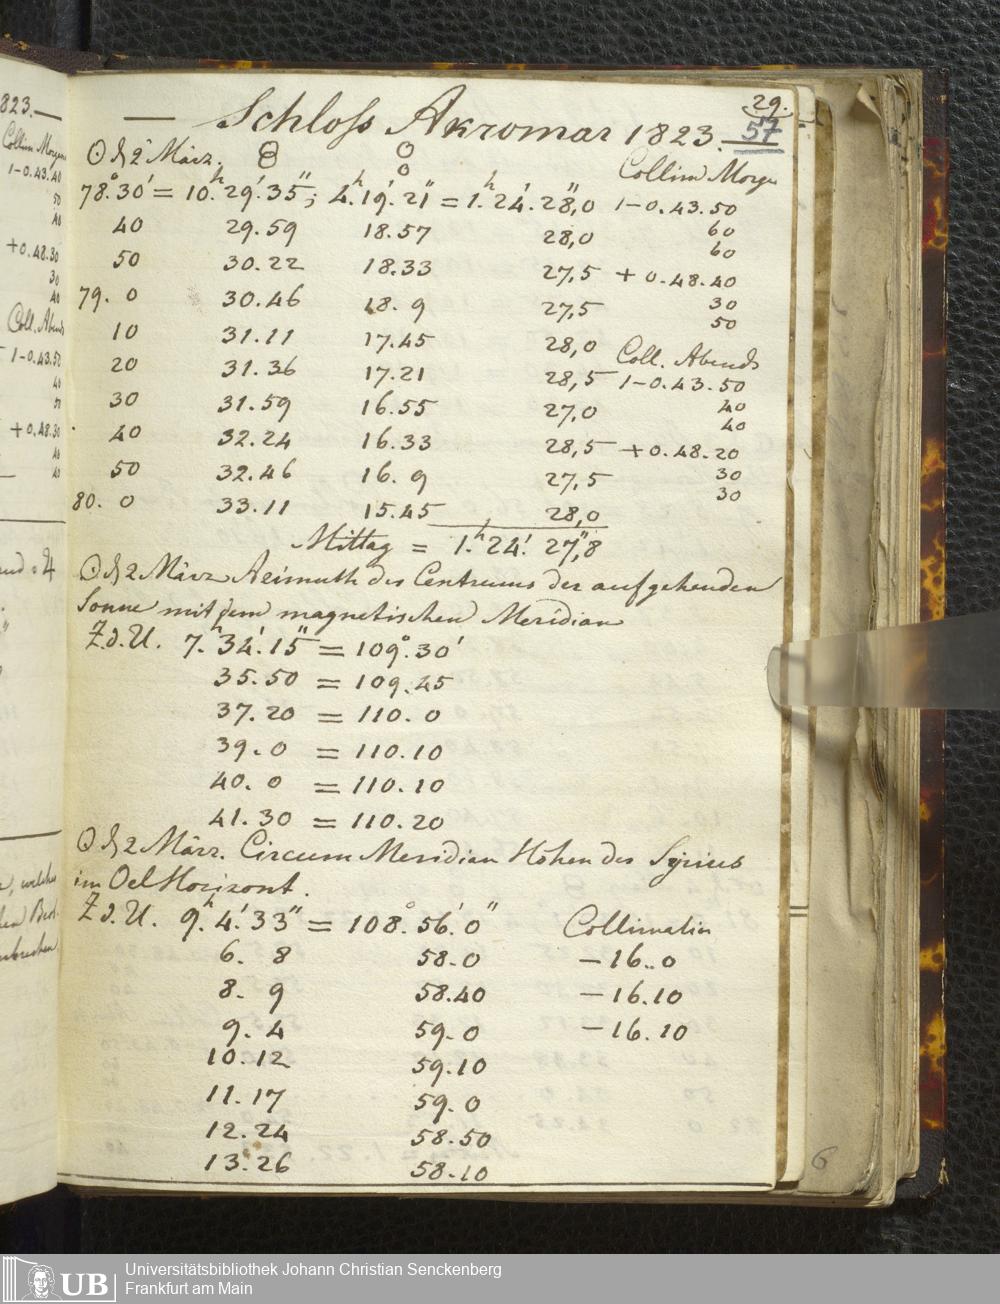 29.
— Schloss Akromar 1823. 57
☉ d 2 März. Collim Morge
78.°30' = 10.h 29.' 35"; 4.h 19.' 21" = 1.h 24.' 28,"0 1-0.43.50
40 29.59 18.57 28,0 60
60
50 30.22 18.33 27,5 + 0.48.40
79. 0 30.46 18. 9 27,5 30
50
10 31.11 17.45 28,0 Coll. Abends
20 31.36 17.21 28,5 1-0.43.50
30 31.59 16.55 27,0 40
40
40 32.24 16.33 28,5 + 0.48.20
50 32.46 16. 9 27,5 30
80. 0 33.11 15.45 28,0 30
Mittag = 1.h 24.' 27,"8
☉ d 2 März Azimuth des Centrums der aufgehenden
Sonne mit dem magnetischen Meridian
Z.d.U. 7.h 34.' 15" = 109.° 30'
35.50 = 109.45
37.20 = 110. 0
39. 0 = 110.10
40. 0 = 110.10
41.30 = 110.20
☉ d 2 März. Circum Meridian Höhen des Syrius
im Oel Horizont.
Z.d.U. 9.h 4.' 33" = 108.° 56.' 0" Collimation
6. 8 58.0 - 16..0
8. 9 58.40 - 16.10
9. 4 59.0 - 16.10
10.12 59.10
11.17 59.0
12.24 58.50
13.26 58.10
6
823.
Collim Morgens
1-0.43.40
50
40
+0.48.30
30
40
Coll. Abends
1-0.43.50
40
50
+0.48.30
40
40
UB Universitätsbibliothek Johann Christian Senckenberg
Frankfurt am Main